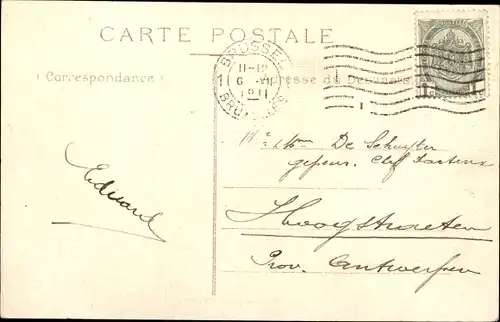 CARTE POSTALE
BRUSSEL
11-12
6 VII
1911
BRUXELLES
1
Correspondance
Adresse du Destinataire
De Schuyter
Clef
Hoogstraeten
Prov. Antwerpen
Edward